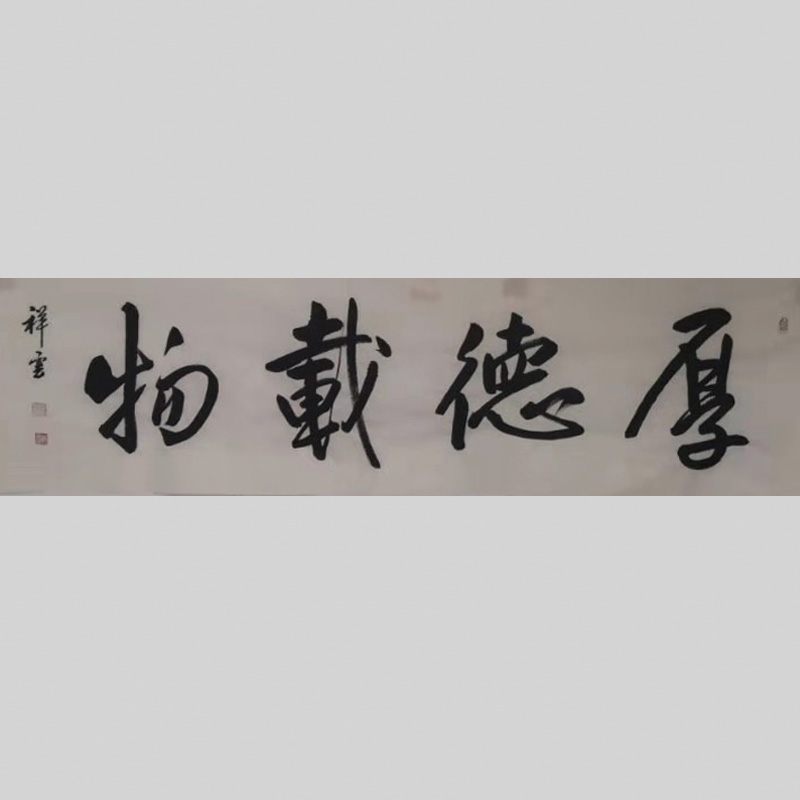 厚德載物
祥雲